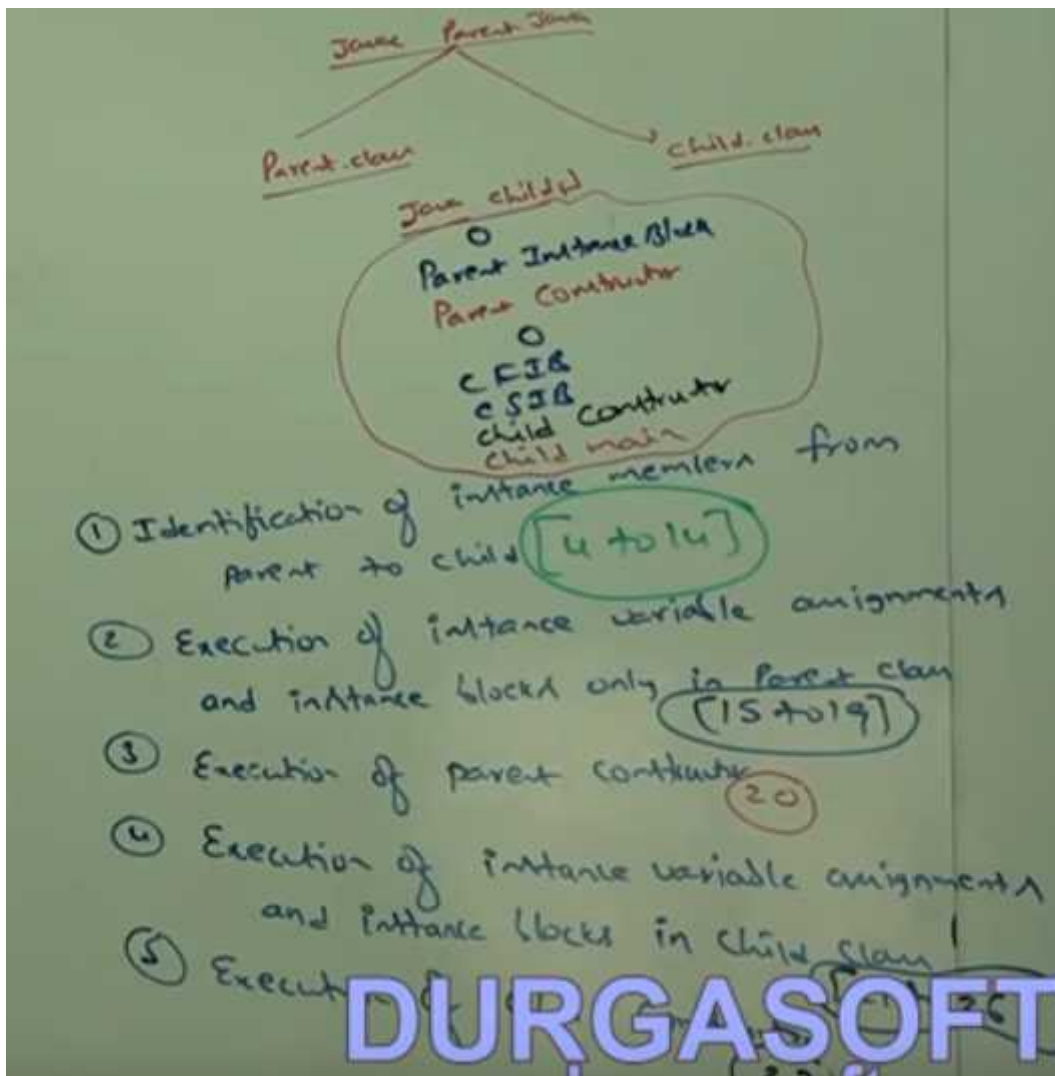 Javac Parent.Java
Parent.class
child.class
Java child↵
0
Parent Instance Block
Parent Constructor
0
CFIB
CSIB
child Constructor
child main
① Identification of instance members from
parent to child [4 to 14]
② Execution of instance variable assignments
and instance blocks only in Parent class
[15 to 19]
③ Execution of parent constructor
20
④ Execution of instance variable assignments
and instance blocks in child class
26
⑤ Execution of
DURGASOFT